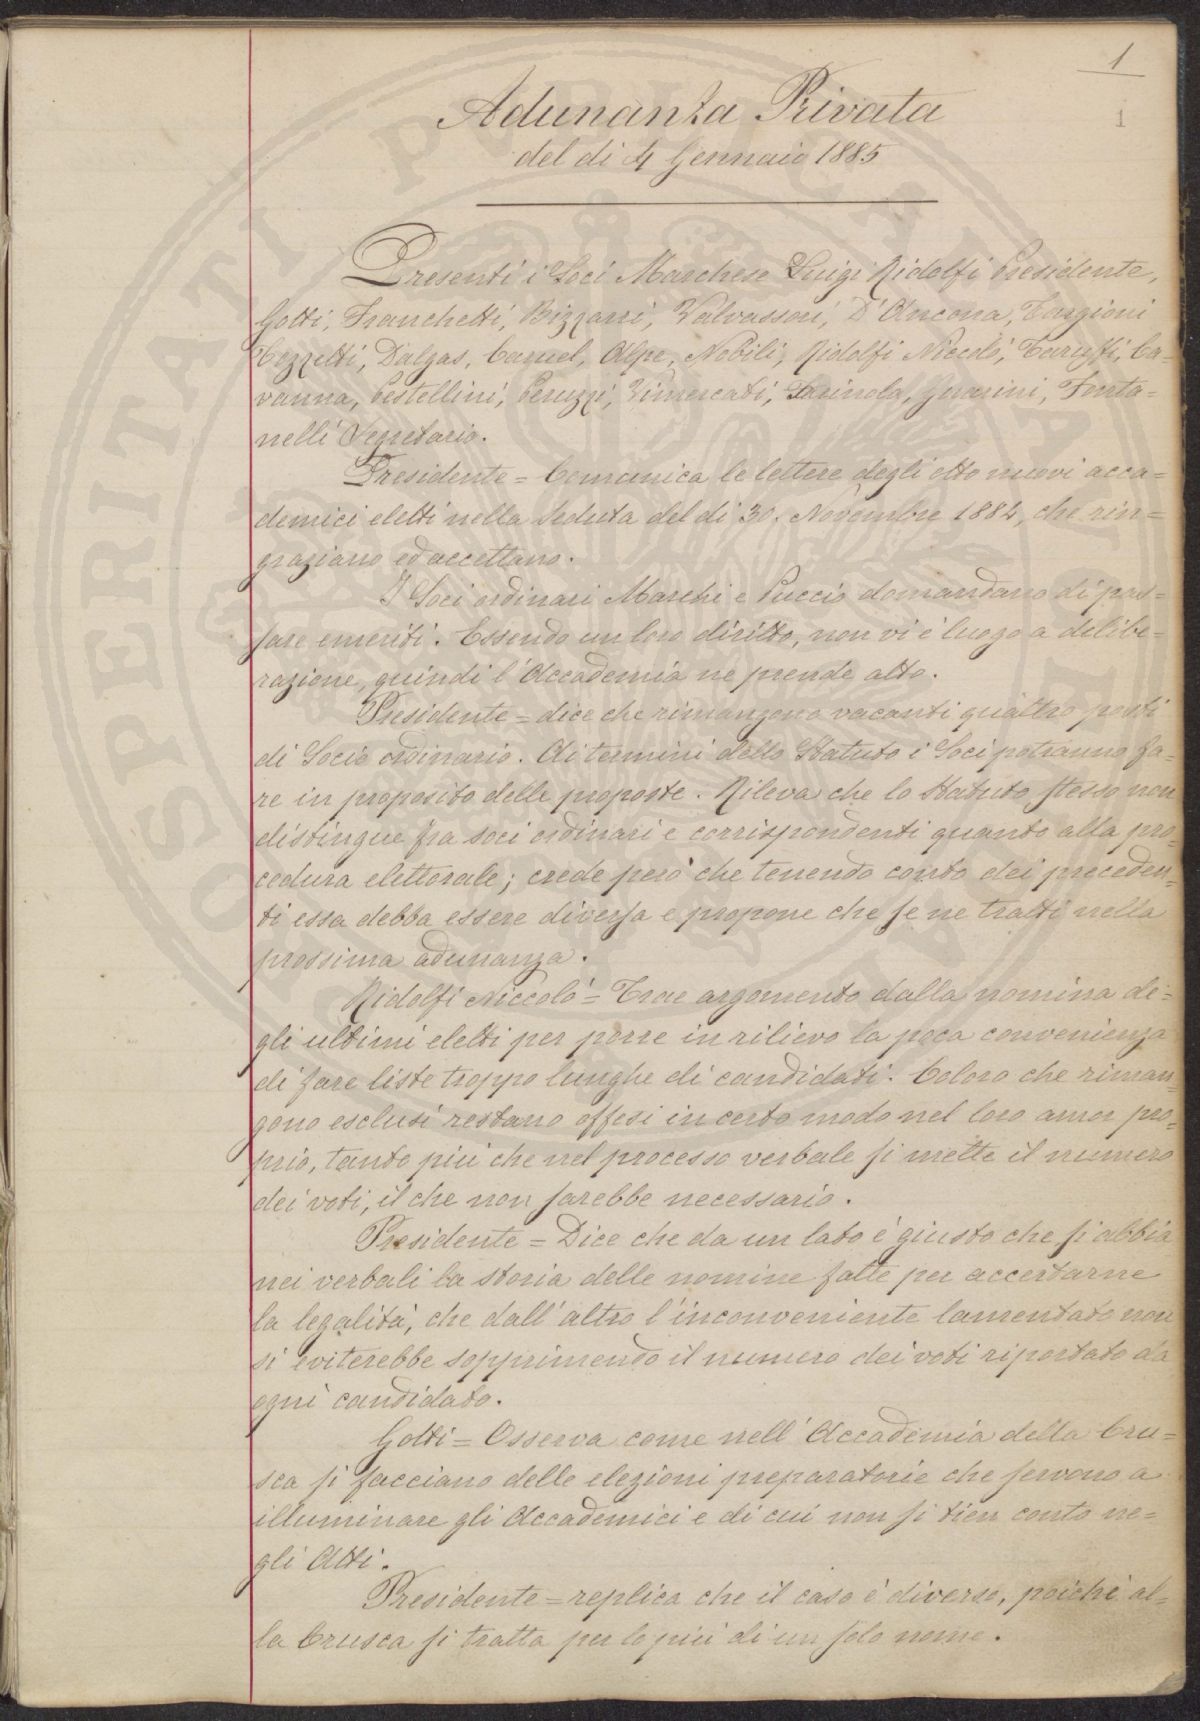 1
1
Adunanza Privata
del dì 4 Gennaio 1885
Presenti i Soci Marchese Luigi Ridolfi Presidente,
Gotti, Franchetti, Bizzarri, Valvassori, D'Ancona, Targioni
Tozzetti, Dalgas, Caruel, Alpe, Nobili, Ridolfi Niccolò, Taruffi, Ca=
vanna, Pestellini, Peruzzi, Vimercati, Farinola, Guarini, Fonta=
nelli Segretario.
Presidente = Comunica le lettere degli otto nuovi acca=
demici eletti nella Seduta del dì 30. Novembre 1884, che rin=
graziano ed accettano.
I Soci ordinari Marchi e Puccio domandano di pas=
sare emeriti. Essendo un loro diritto, non vi è luogo a delibe=
razione, quindi l'Accademia ne prende atto.
Presidente = dice che rimangono vacanti quattro posti
di Socio ordinario. Ai termini dello Statuto i Soci potranno fa=
re in proposito delle proposte. Rileva che lo Statuto stesso non
distingue fra soci ordinari e corrispondenti quanto alla pro=
cedura elettorale; crede però che tenendo conto dei preceden=
ti essa debba essere diversa e propone che se ne tratti nella
prossima adunanza.
Ridolfi Niccolò = Trae argomento dalla nomina de=
gli ultimi eletti per porre in rilievo la poca convenienza
di fare liste troppo lunghe di candidati. Coloro che riman=
gono esclusi restano offesi in certo modo nel loro amor pro=
prio, tanto più che nel processo verbale si mette il numero
dei voti, il che non sarebbe necessario.
Presidente = Dice che da un lato è giusto che si abbia
nei verbali la storia delle nomine fatte per accertarne
la legalità, che dall'altro l'inconveniente lamentato non
si eviterebbe sopprimendo il numero dei voti riportato da
ogni candidato.
Gotti = Osserva come nell'Accademia della Cru=
sca si facciano delle elezioni preparatorie che servono a
illuminare gli Accademici e di cui non si tien conto ne=
gli Atti.
Presidente = replica che il caso è diverso, poichè al=
la Crusca si tratta per lo più di un solo nome.